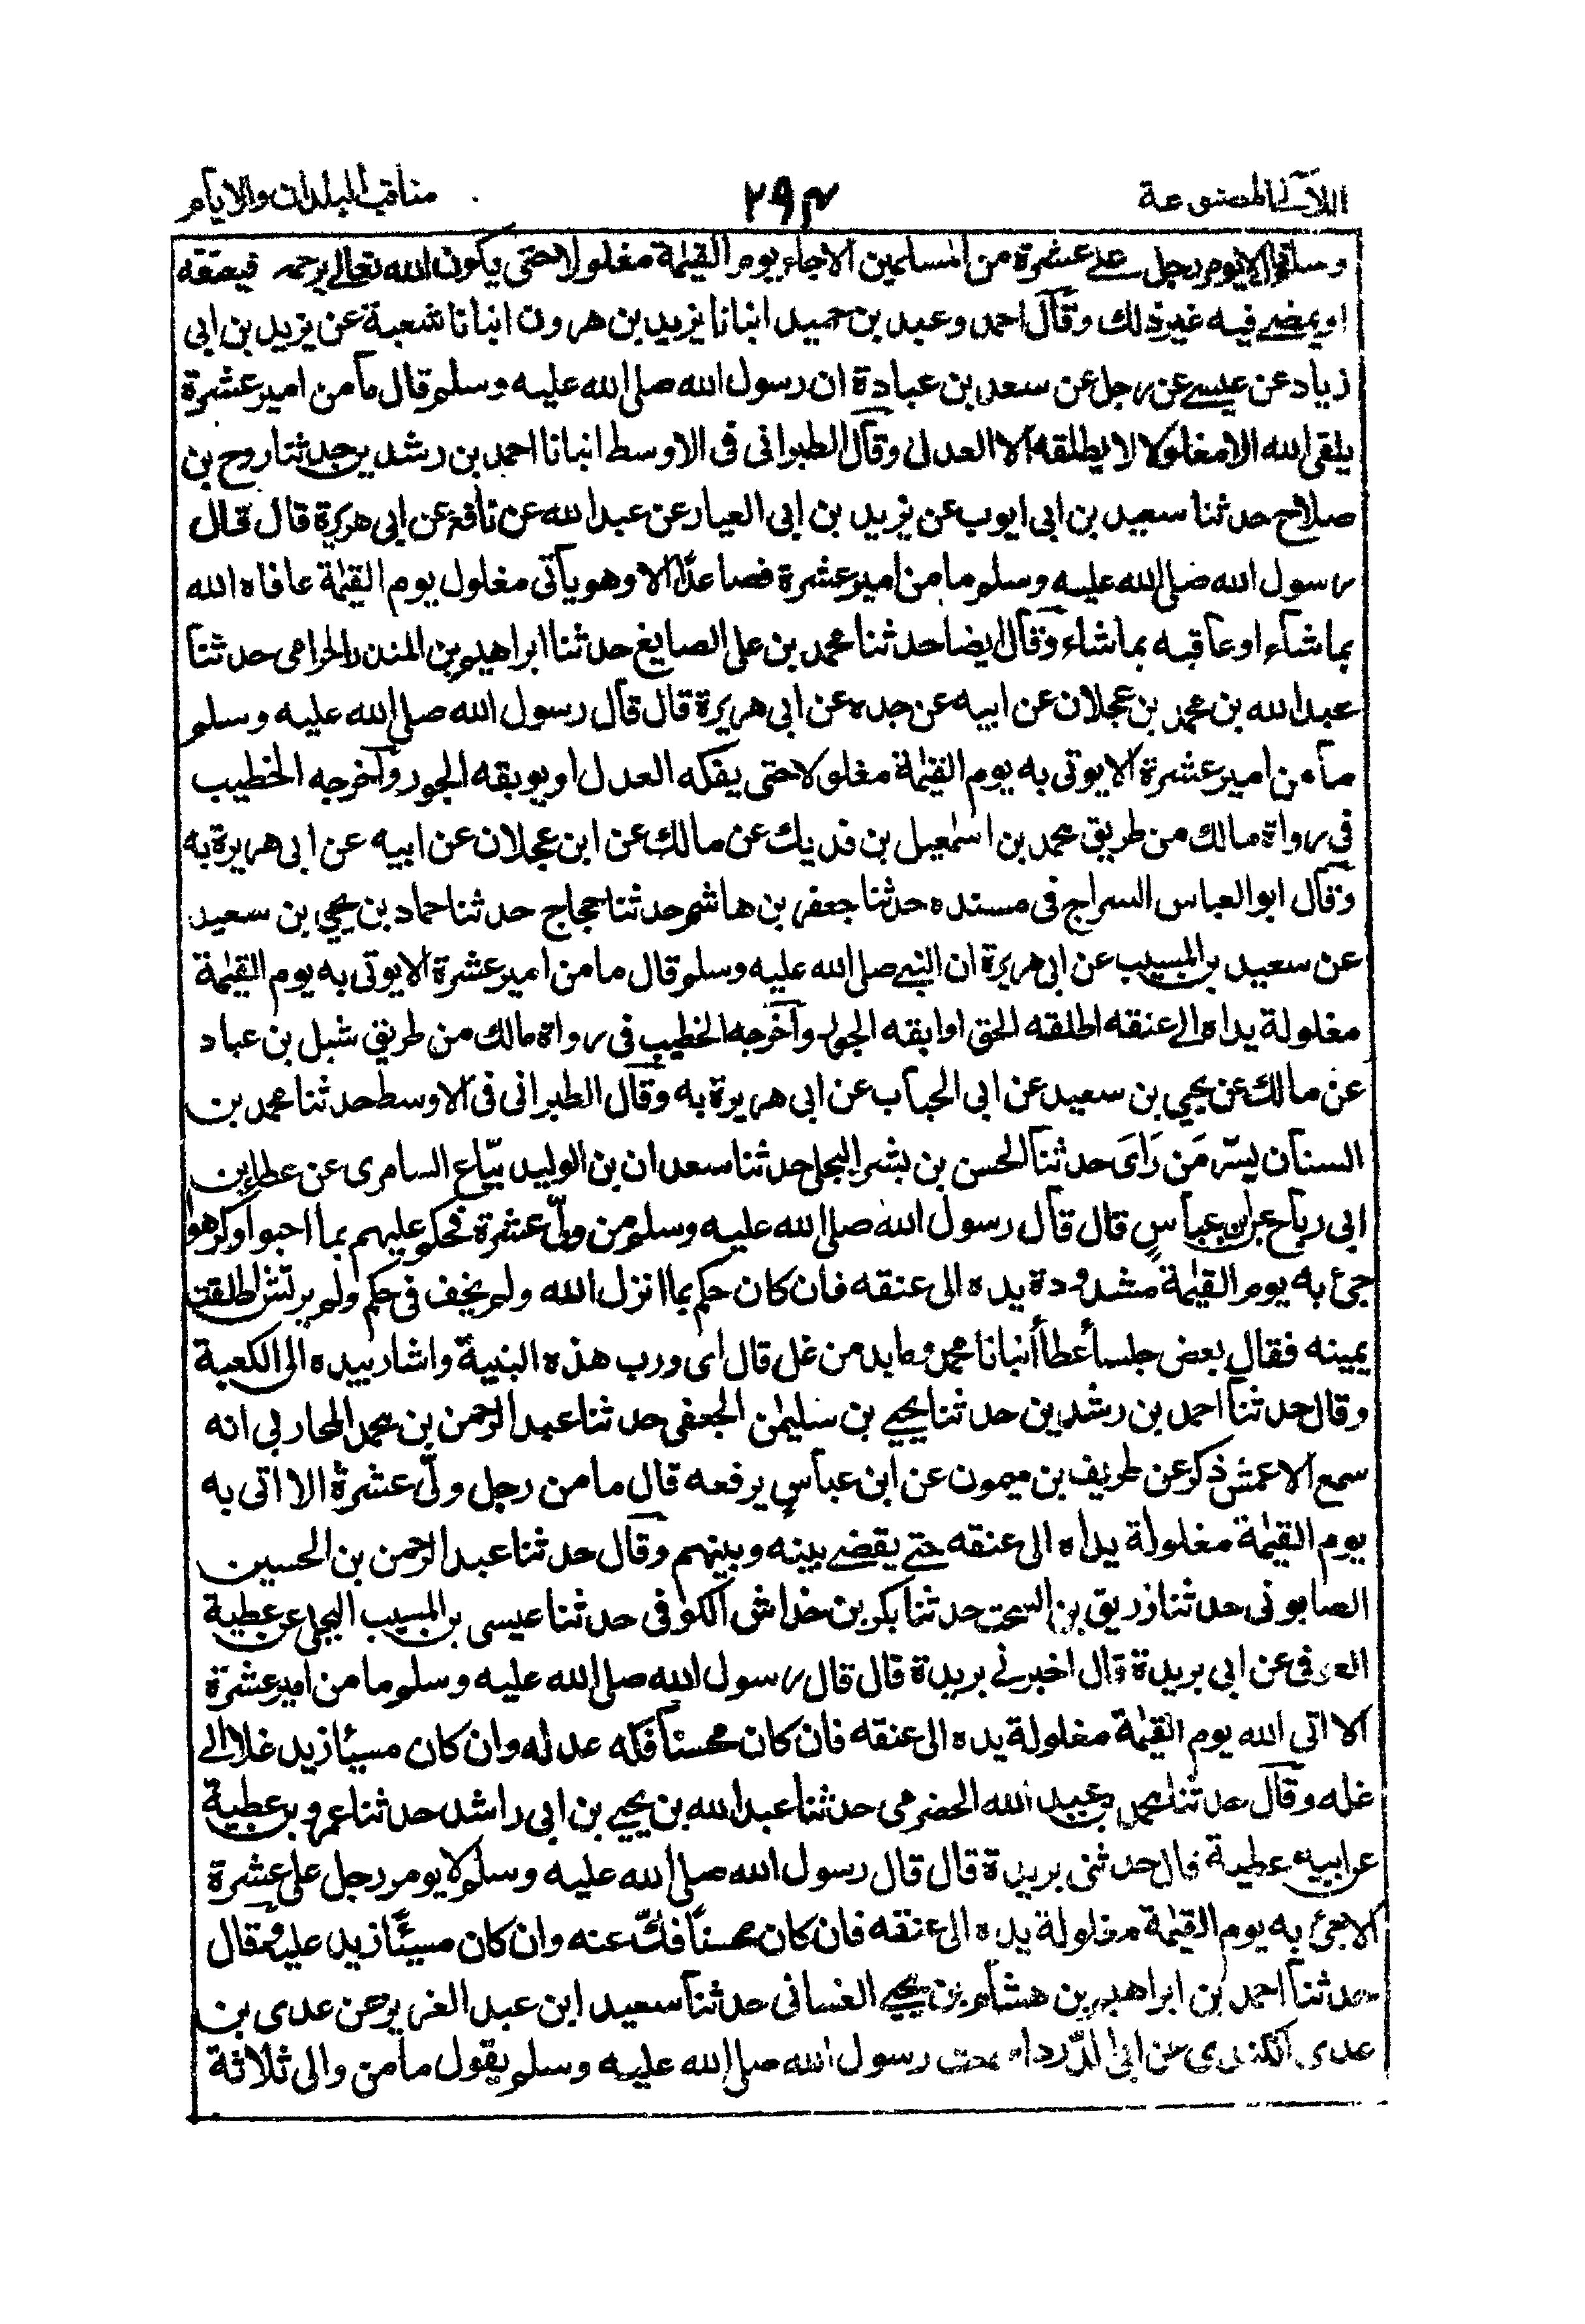 اللآلى المصنوعة
۲۹۳
مناقب البلدان والايام
وسلم قال لا يوم رجل على عشرة من المسلمين الا جاء يوم القيٰمة مغلولا حتى يكون الله تعالى يرحمه فيعتقه
او يمضے فيه غير ذلك وقال احمد وعبد بن حميد انبانا يزيد بن هرون انبانا شعبة عن يزيد بن ابى
زياد عن عيسے عن رجل عن سعد بن عبادة ان رسول الله صلى الله عليه وسلم قال ما من امير عشرة
يلقى الله الا مغلولا لا يطلقه الا العدل وقال الطبرانى فى الاوسط انبانا احمد بن رشدين حدثنا روح بن
صلاح حدثنا سعيد بن ابى ايوب عن يزيد بن ابى العيار عن عبد الله عن نافع عن ابى هريرة قال قال
رسول الله صلى الله عليه وسلم ما من امير عشرة فصاعدًا الا وهو يأتى مغلول يوم القيٰمة عافاه الله
بما شاء او عاقبه بما شاء وقال ايضا حدثنا محمد بن على الصايغ حدثنا ابراهيم بن المنذر الحزامى حدثنا
عبد الله بن محمد بن عجلان عن ابيه عن جده عن ابى هريرة قال قال رسول الله صلى الله عليه وسلم
ما من امير عشرة الا يوتى به يوم القيٰمة مغلولا حتى يفكه العدل او يوبقه الجور وآخرجه الخطيب
فى رواة مالك من طريق محمد بن اسمٰعيل بن فديك عن مالك عن ابن عجلان عن ابيه عن ابى هريرة به
وقال ابو العباس السراج فى مسنده حدثنا جعفر بن هاشم حدثنا حجاج حدثنا حماد بن يحيى بن سعيد
عن سعيد بن المسيب عن ابى هريرة ان النبے صلى الله عليه وسلم قال ما من امير عشرة الا يوتى به يوم القيٰمة
مغلولة يداه الے عنقه اطلقه الحق او ابقه الجور وآخرجه الخطيب فى رواة مالك من طريق شبل بن عباد
عن مالك عن يحيى بن سعيد عن ابى الحباب عن ابى هريرة به وقال الطبرانى فى الاوسط حدثنا محمد بن
السنان بسرّ مَن رَاىَ حدثنا الحسن بن بشر البجلى حدثنا سعدان بن الوليد بيّاع السامرى عن عطاء بن
ابى رباح عن ابن عباسٍ قال قال رسول الله صلى الله عليه وسلم من ولىّ عشرة فحكم عليهم بما احبوا او كرهوا
جئ به يوم القيٰمة مشدودة يده الى عنقه فان كان حكم بما انزل الله ولم يخف فى حكم ولم يرتش اطلقت
يمينه فقال بعض جلسأ عطأ أنبانا محمد وما بد من غل قال اى ورب هذه البنية واشار بيده الى الكعبة
وقال حدثنا احمد بن رشدين حدثنا يحيے بن سليمٰن الجعفى حدثنا عبد الرحمن بن محمد المحاربى انه
سمع الاعمش ذكر عن طريف بن ميمون عن ابن عباسٍ يرفعه قال ما من رجل ولّى عشرة الا اتى به
يوم القيٰمة مغلولة يداه الى عنقه حتے يقضے بينه وبينهم وقال حدثنا عبد الرحمن بن الحسين
الصابونى حدثنا زريق بن السحت حدثنا بكر بن خداش الكوفى حدثنا عيسى بن المسيب البجلى عن عطية
العوفى عن ابى بريدة قال اخبرنے بريدة قال قال رسول الله صلى الله عليه وسلم ما من امير عشرة
الا اتى الله يوم القيٰمة مغلولة يده الى عنقه فان كان محسنا فكه عدله وان كان مسيئا زيد غلا الے
غله وقال حدثنا محمد بن عبيد الله الحضرمى حدثنا عبد الله بن يحيے بن ابى راشد حدثنا عمرو بن عطية
عن ابيه عطية قال حدثنى بريدة قال قال رسول الله صلى الله عليه وسلم لا يوم رجل على عشرة
الا جئ به يوم القيٰمة مغلولة يده الى عنقه فان كان محسنًا فكّ عنه وان كان مسيئًا زيد عليه وقال
حدثنا احمد بن ابراهيم بن هشام بن يحيے الغسانى حدثنا سعيد ابن عبد العزيز عن عدى بن
عدى الكندى عن ابى الدّرداء رسول الله صلى الله عليه وسلم يقول ما من والى ثلاثة